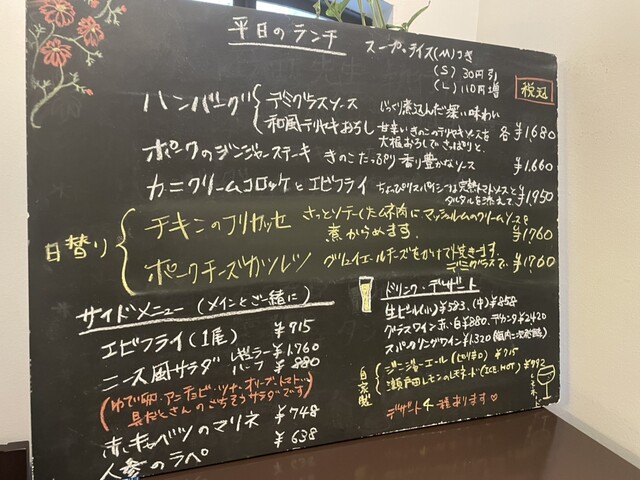 平日のランチ
スープ・ライス(M)つき
(S) 30円引
(L) 110円増
税込
ハンバーグ
デミグラスソース じっくり煮込んだ深い味わい
和風テリヤキおろし 甘辛いきのこのテリヤキソースを
大根おろしでさっぱりと、 各¥1,680
ポークのジンジャーステーキ きのこたっぷり香り豊かなソース ¥1,660
カニクリームコロッケとエビフライ ちょっぴりスパイシーな完熟トマトソースと
タルタルを添えて、 ¥1,950
日替り
チキンのフリカッセ さっとソテーした鶏肉にマッシュルームのクリームソースを
煮からめます。 ¥1,760
ポークチーズカツレツ グリュイエールチーズをかけて焼きます。
デミグラスで、 ¥1,760
サイドメニュー (メインとご一緒に)
エビフライ (1尾) ¥915
ニース風サラダ レギュラー ¥1,760
ハーフ ¥880
(ゆで卵・アンチョビ・ツナ・オリーブ・トマト…
具だくさんのごちそうサラダです)
赤キャベツのマリネ ¥748
人参のラペ ¥638
ドリンク・デザート
生ビール(小)¥583、(中)¥858
グラスワイン 赤・白¥880、デカンタ¥2420
スパークリングワイン¥1,320
自家製
ジンジャーエール ¥715
瀬戸田レモンのレモネード(ICE HOT)
デザート4種あります♡